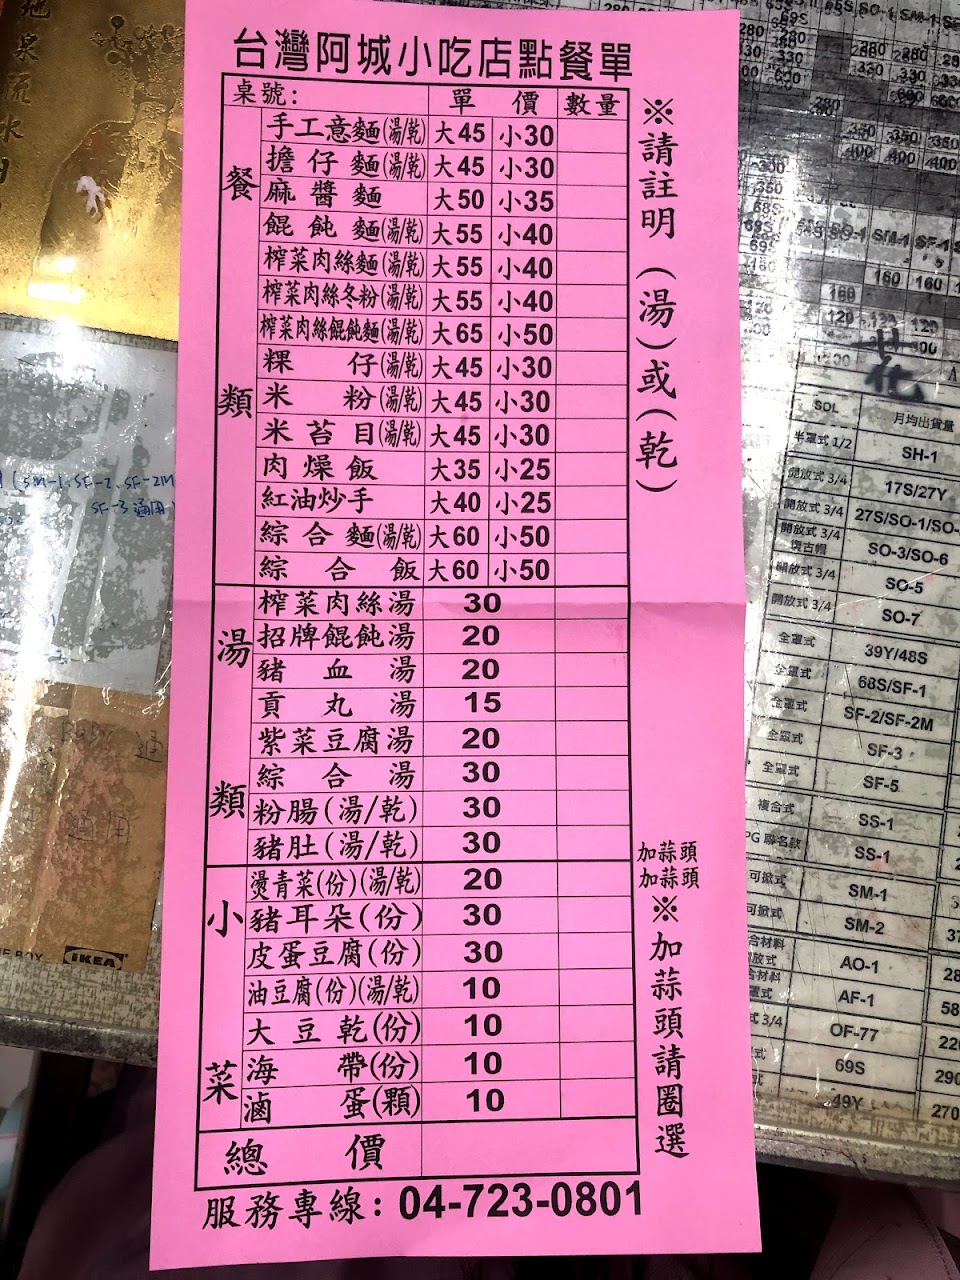 台灣阿城小吃店點餐單
桌號: 單價 數量
餐類
手工意麵(湯/乾) 大45 小30
擔仔麵(湯/乾) 大45 小30
麻醬麵 大50 小35
餛飩麵(湯/乾) 大55 小40
榨菜肉絲麵(湯/乾) 大55 小40
榨菜肉絲冬粉(湯/乾) 大55 小40
榨菜肉絲餛飩麵(湯/乾) 大65 小50
粿仔(湯/乾) 大45 小30
米粉(湯/乾) 大45 小30
米苔目(湯/乾) 大45 小30
肉燥飯 大35 小25
紅油炒手 大40 小25
綜合麵(湯/乾) 大60 小50
綜合飯 大60 小50
湯類
榨菜肉絲湯 30
招牌餛飩湯 20
豬血湯 20
貢丸湯 15
紫菜豆腐湯 20
綜合湯 30
粉腸(湯/乾) 30
豬肚(湯/乾) 30
小菜
燙青菜(份)(湯/乾) 20
豬耳朵(份) 30
皮蛋豆腐(份) 30
油豆腐(份)(湯/乾) 10
大豆乾(份) 10
海帶(份) 10
滷蛋(顆) 10
總價
服務專線: 04-723-0801
※請註明(湯)或(乾)
加蒜頭
加蒜頭
※加蒜頭請圈選
IKEA
SOL 月均出貨量
半罩式 1/2 SH-1
開放式 3/4 17S/27Y
開放式 3/4 27S/SO-1/SO-
開放式 3/4 復古帽 SO-3/SO-6
開放式 3/4 SO-5
開放式 3/4 SO-7
全罩式 39Y/48S
全罩式 68S/SF-1
全罩式 SF-2/SF-2M
全罩式 SF-3
全罩式 SF-5
複合式 SS-1
聯名款 SS-1
可掀式 SM-1
可掀式 SM-2
AO-1
AF-1
OF-77
69S
49Y